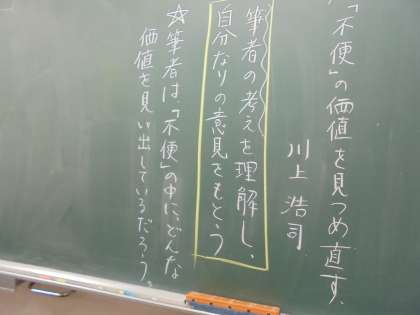 「不便」の価値を見つめ直す
川上 浩司
筆者の考えを理解し、
自分なりの意見をもとう
☆筆者は、「不便」の中に、どんな
価値を見い出しているだろう。